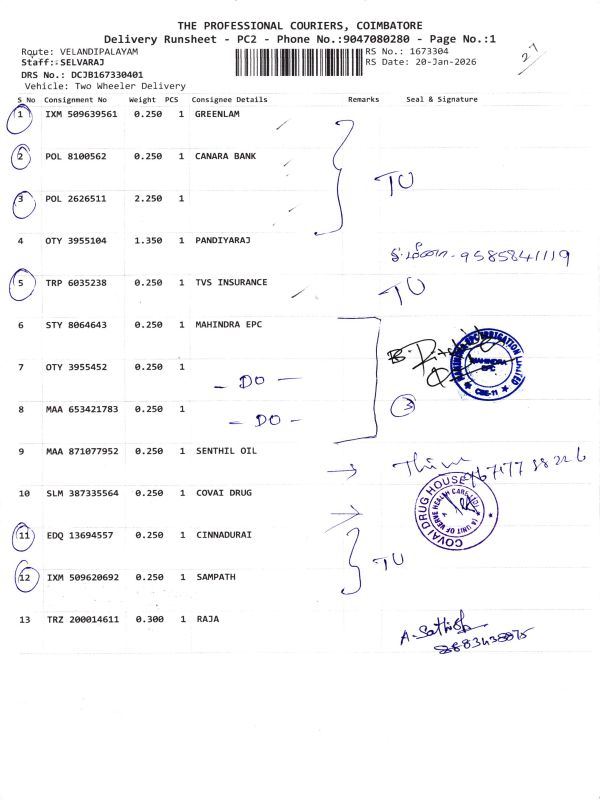 THE PROFESSIONAL COURIERS, COIMBATORE
Delivery Runsheet - PC2 - Phone No.:9047080280 - Page No.:1
27
Route: VELANDIPALAYAM
RS No.: 1673304
Staff: SELVARAJ
RS Date: 20-Jan-2026
DRS No.: DCJB167330401
Vehicle: Two Wheeler Delivery
S No Consignment No Weight PCS Consignee Details Remarks Seal & Signature
1 IXM 509639561 0.250 1 GREENLAM
2 POL 8100562 0.250 1 CANARA BANK
TU
3 POL 2626511 2.250 1
4 OTY 3955104 1.350 1 PANDIYARAJ
9585841119
5 TRP 6035238 0.250 1 TVS INSURANCE
TU
6 STY 8064643 0.250 1 MAHINDRA EPC
MAHINDRA EPC IRRIGATION LIMITED
MAHINDRA
EPC
CBE-11
7 OTY 3955452 0.250 1
- DO -
8 MAA 653421783 0.250 1
- DO -
3
9 MAA 871077952 0.250 1 SENTHIL OIL
10 SLM 387335564 0.250 1 COVAI DRUG
COVAI DRUG HOUSE
11 EDQ 13694557 0.250 1 CINNADURAI
TU
12 IXM 509620692 0.250 1 SAMPATH
13 TRZ 200014611 0.300 1 RAJA
A. Sathish